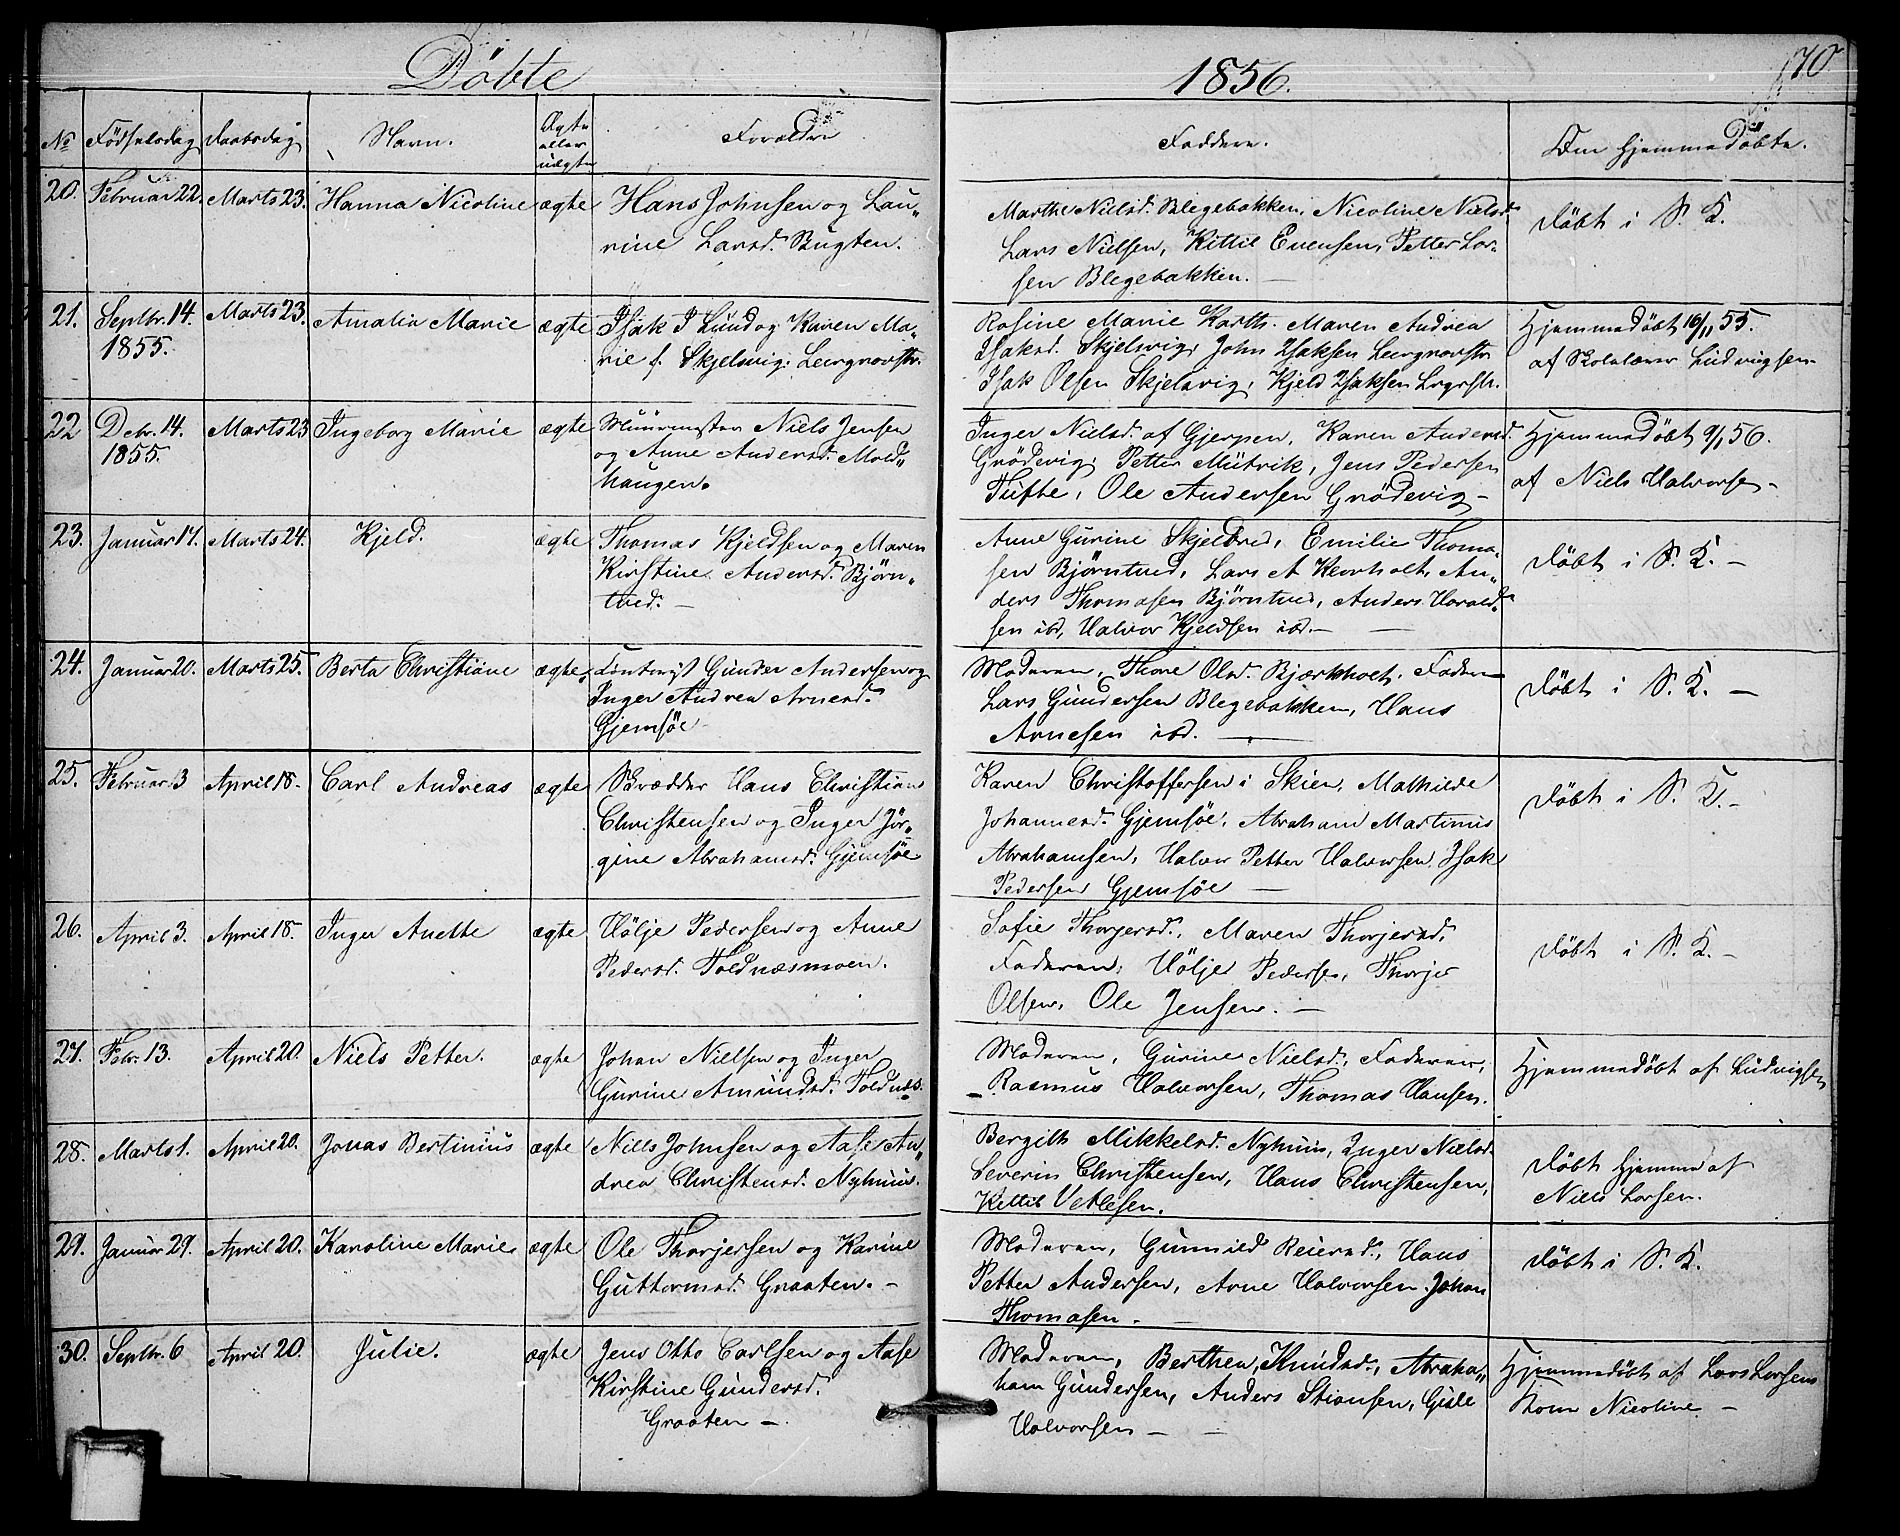 Döbte
1856.
70
No Födselsdag Daabsdag Navn. Ægte eller uægte Forældre Faddere. Om hjemmedöbte.
20. Februar 22. Marts 23. Hanna Nicoline ægte Hans Johnsen og Lau„ Marthe Nielsd. Blegebakken, Nicoline Nielsd. Döbt i S. K.
rine Larsd. Bugten. Lars Nielsen, Kittil Evensen, Petter Lar„
sen Blegebakken. —
21. Septbr. 14. Marts 23. Amalia Marie ægte Isak I Lund og Karen Ma„ Rosine Marie Karth. Maren Andrea Hjemmedöbt 16/11 55.
1855. rie f. Skjelsvig, Leirgravstr. Isaksd. Skjelsvig, John Isaksen Leirgravstr. af Skolelærer Ludvigsen
Isak Olsen Skjelsvig, Kjeld Isaksen Lrgrstr.
22 Debr. 14. Marts 23 Ingeborg Marie ægte Muurmester Niels Jensen Inger Nielsd. af Gjerpen, Karen Andersd. Hjemmedöbt 9/1 56.
1855. og Anne Andersd. Mold„ Grödevig, Petter Mütrik, Jens Pedersen af Niels Halvorsen.
haugen. Tufte, Ole Andersen Grödevig —
23. Januar 17. Marts 24. Kjeld. ægte Thomas Kjeldsen og Maren Anne Gurine Skjeldred, Emilie Thoma„ Döbt i S. K. —
Kirstine Andersd. Björn„ sen Björntved, Lars A Hovholt, An„
tved. — ders Thomasen Björntved, Anders Harald„
sen ibd, Halvor Kjeldsen ibd. —
24. Januar 20. Marts 25. Berta Christiane ægte Gunder Andersen og Moderen, Thore Olsd. Bjærkholt, Faderen Döbt i S. K. —
Inger Andrea Arnesd. Lars Gundersen Blegebakken, Hans
Gjemsöe Arnesen ibd. —
25. Februar 3 April 18. Carl Andreas ægte Skrædder Hans Christian Karen Christoffersen i Skien, Mathilde Döbt i S. K. —
Christensen og Inger Jör„ Johannesd. Gjemsöe, Abraham Martinus
gine Abrahamsd. Gjemsöe Abrahamsen, Halvor Petter Halvorsen, Isak
Pedersen Gjemsöe —
26. April 3. April 18. Inger Anette ægte Hölje Pedersen og Anne Sofie Thorjersd., Maren Thorjersd. Döbt i S. K. —
Pedersd. Toldnæsmoen. Faderen, Hölje Pedersen, Thorjer
Olsen, Ole Jensen. —
27. Febr. 13. April 20. Niels Petter. ægte Johan Nielsen og Inger Moderen, Gurine Nielsd., Faderen, Hjemmedöbt af Ludvigsen
Gurine Amundsd. Toldnæs. Rasmus Halvorsen, Thomas Hansen.
28. Marts 1. April 20. Jonas Bertinius ægte Niels Johnsen og Aase An„ Bergith Mikkelsd. Nyhuus, Inger Nielsd. Döbt hjemme af
drea Christensd. Nyhuus. Severin Christensen, Hans Christensen, Niels Larsen.
Kittil Vetlesen.
29. Januar 29. April 20. Karoline Marie ægte Ole Thorjersen og Karine Moderen, Gunnild Reiersd., Hans Döbt i S. K.
Guttormsd. Graaten. — Petter Andersen, Arne Halvorsen, Johan
Thomasen. —
30. Septbr. 6 April 20. Julie. ægte Jens Otto Carlsen og Aase Moderen, Berthea Knudsd., Abraha„ Hjemmedöbt af Lars Larsens
Kirstine Gundersd. ham Gundersen, Anders Stiansen, Gisle Kone Nicoline —
Graaten —. Halvorsen —